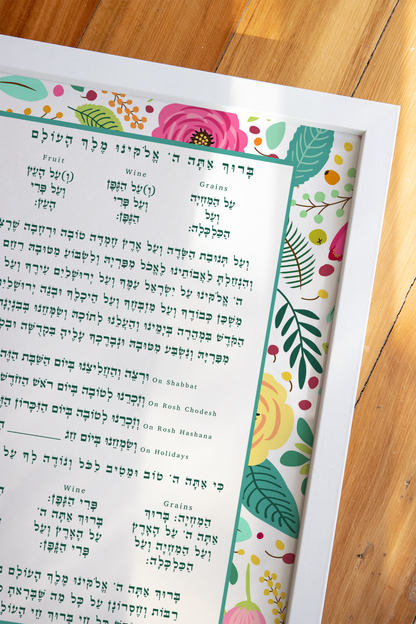 בָּרוּךְ אַתָּה ה׳ אֱלֹקֵינוּ מֶלֶךְ הָעוֹלָם
Grains
עַל הַמִּחְיָה
וְעַל
הַכַּלְכָּלָה:
Wine
(וְ)עַל הַגֶּפֶן
וְעַל פְּרִי
הַגֶּפֶן:
Fruit
(וְ)עַל הָעֵץ
וְעַל פְּרִי
הָעֵץ:
וְעַל תְּנוּבַת הַשָּׂדֶה וְעַל אֶרֶץ חֶמְדָּה טוֹבָה וּרְחָבָה
וְהִנְחַלְתָּ לַאֲבוֹתֵינוּ לֶאֱכֹל מִפִּרְיָהּ וְלִשְׂבֹּעַ מִטּוּבָהּ רַחֵם
ה׳ אֱלֹקֵינוּ עַל יִשְׂרָאֵל עַמֶּךָ וְעַל יְרוּשָׁלַיִם עִירֶךָ וְעַל
מִשְׁכַּן כְּבוֹדֶךָ וְעַל מִזְבְּחֶךָ וְעַל הֵיכָלֶךָ וּבְנֵה
הַקֹּדֶשׁ בִּמְהֵרָה בְיָמֵינוּ וְהַעֲלֵנוּ לְתוֹכָהּ וְשַׂמְּחֵנוּ בְּבִנְיָנָהּ
מִפִּרְיָהּ וְנִשְׂבַּע מִטּוּבָהּ וּנְבָרֶכְךָ עָלֶיהָ בִּקְדֻשָּׁה
On Shabbat וּרְצֵה וְהַחֲלִיצֵנוּ בְּיוֹם הַשַּׁבָּת
On Rosh Chodesh וְזָכְרֵנוּ לְטוֹבָה בְּיוֹם רֹאשׁ הַחֹדֶשׁ
On Rosh Hashana וְזָכְרֵנוּ לְטוֹבָה בְּיוֹם הַזִּכָּרוֹן
On Holidays וְשַׂמְּחֵנוּ בְּיוֹם חַג ________
כִּי אַתָּה ה׳ טוֹב וּמֵטִיב לַכֹּל וְנוֹדֶה לְּךָ עַל
Grains
הַמִּחְיָה: בָּרוּךְ
אַתָּה ה׳ עַל הָאָרֶץ
וְעַל הַמִּחְיָה וְעַל
הַכַּלְכָּלָה:
Wine
פְּרִי הַגֶּפֶן:
בָּרוּךְ אַתָּה ה׳
עַל הָאָרֶץ וְעַל
פְּרִי הַגֶּפֶן:
בָּרוּךְ אַתָּה ה׳ אֱלֹקֵינוּ מֶלֶךְ הָעוֹלָם
רַבּוֹת וְחֶסְרוֹנָן עַל כָּל מַה שֶּׁבָּרָאתָ